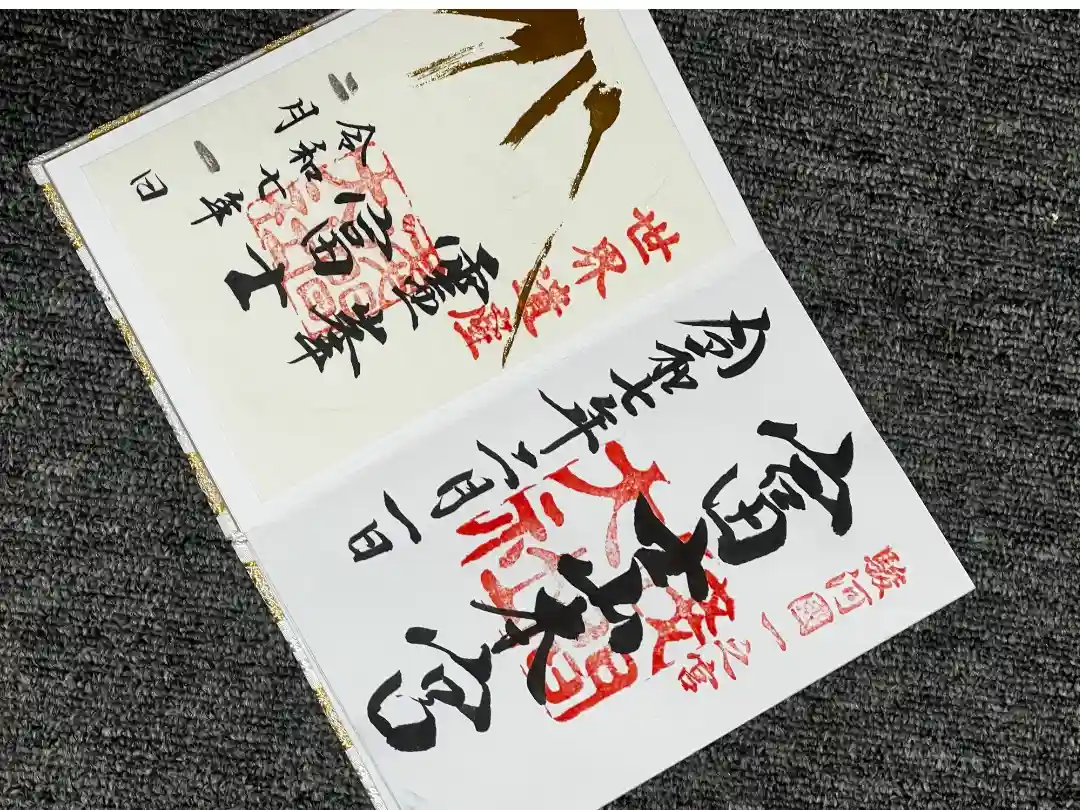 駿河國一之宮
富士山本宮
淺間
大社
令和七年二月一日
世界遺産
霊峯
富士
令和七年
二月一日